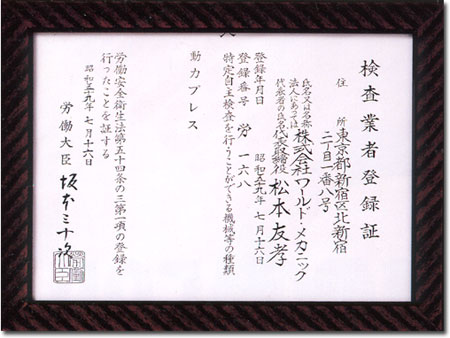 検査業者登録証
住所 東京都新宿区北新宿
二丁目一番八号
氏名又は名称
法人にあつては
代表者の氏名
株式会社ワールド・メカニック
代表取締役 松本友孝
登録年月日 昭和五十九年七月十六日
登録番号 労一六八
特定自主検査を行うことができる機械等の種類
動力プレス
労働安全衛生法第五十四条の三第一項の登録を
行つたことを証する
昭和五十九年七月十六日
労働大臣 坂本三十次